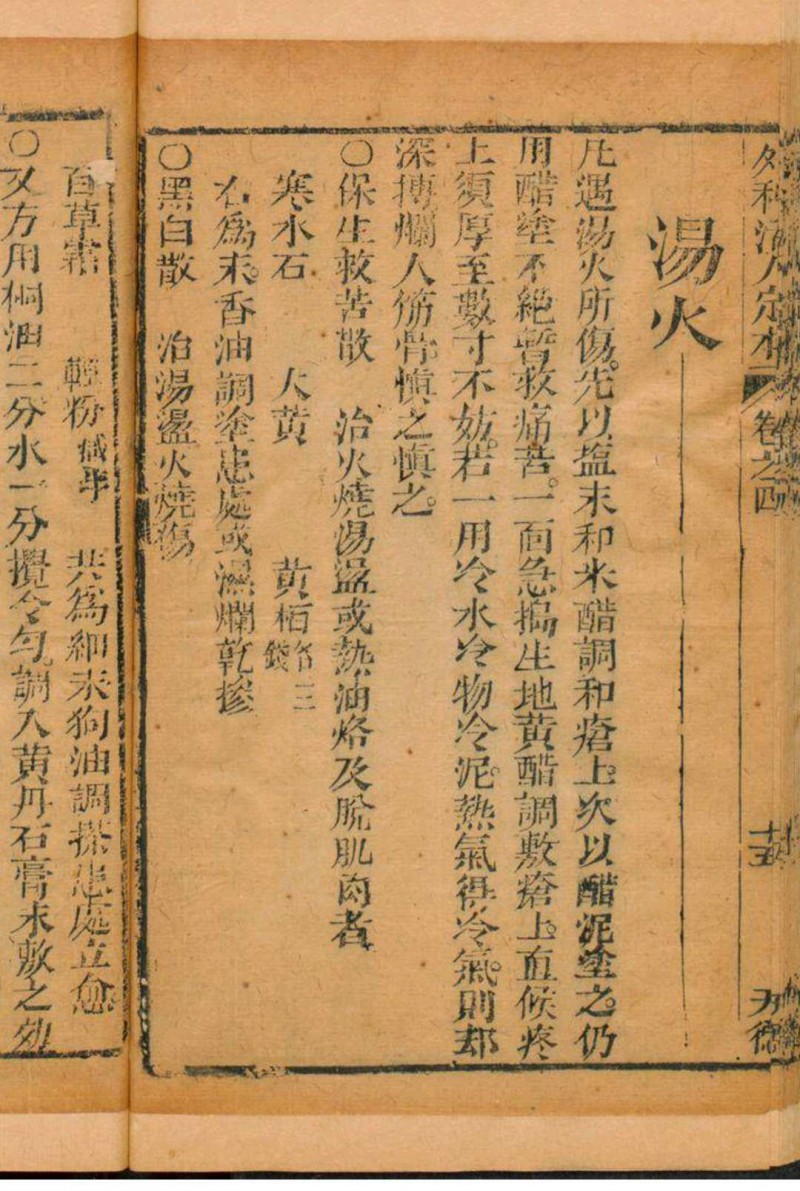 外科活人定本 卷之四 十五
湯火
凡遇湯火所傷。先以塩末和米醋調和瘡上。次以醋泥塗之。仍
用醋塗不絶。暫救痛苦。一面急搗生地黃醋調敷瘡上。直候疼
上須厚至數寸不妨。若一用冷水冷物冷泥。熱氣得冷氣。則却
深摶爛人筋骨。慎之慎之。
○保生救苦散 治火燒湯盪或熱油烙及脫肌肉者
寒水石 大黃 黃栢各三錢
右爲末。香油調塗患處或濕爛乾摻
○黑白散 治湯盪火燒傷
百草霜 輕粉減半 共爲細末狗油調搽患處立愈
○又方用桐油二分水一分攪令勻調入黃丹石膏末敷之効